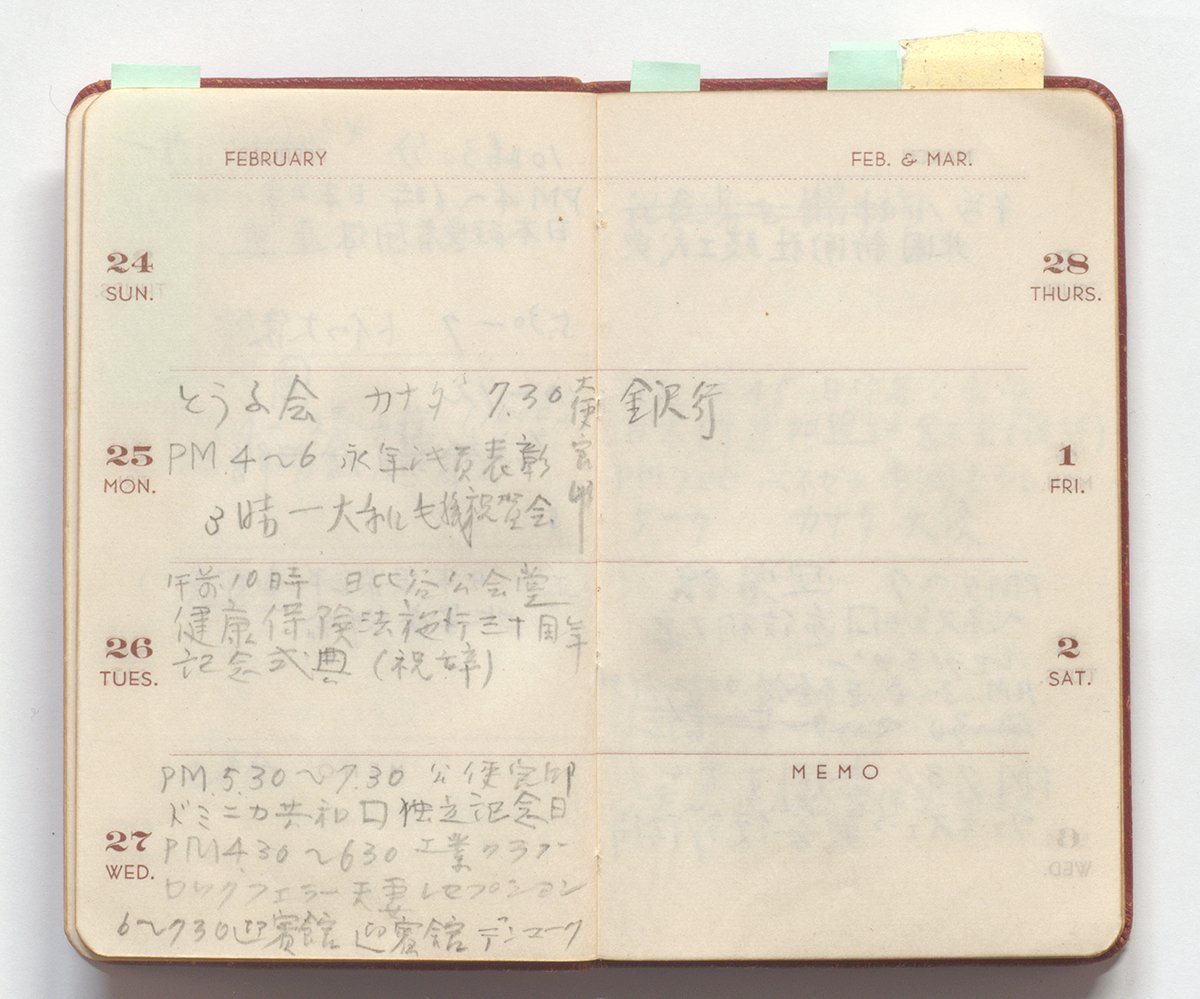 FEBRUARY
24
SUN.
とうよ会 カナダ 7.30 大使官邸
25
MON.
PM 4〜6 永年 議員表彰
3時 一 大 祝賀会
26
TUES.
午前10時 日比谷公会堂
健康保険法施行三十周年
記念式典 (祝辞)
27
WED.
PM 5.30〜7.30 公使官邸
ドミニカ共和国独立記念日
PM4.30〜630 工業クラブ
ロックフェラー夫妻レセプション
6〜730迎賓館 迎賓館 デンマーク
FEB. & MAR.
28
THURS.
金沢行
1
FRI.
2
SAT.
MEMO